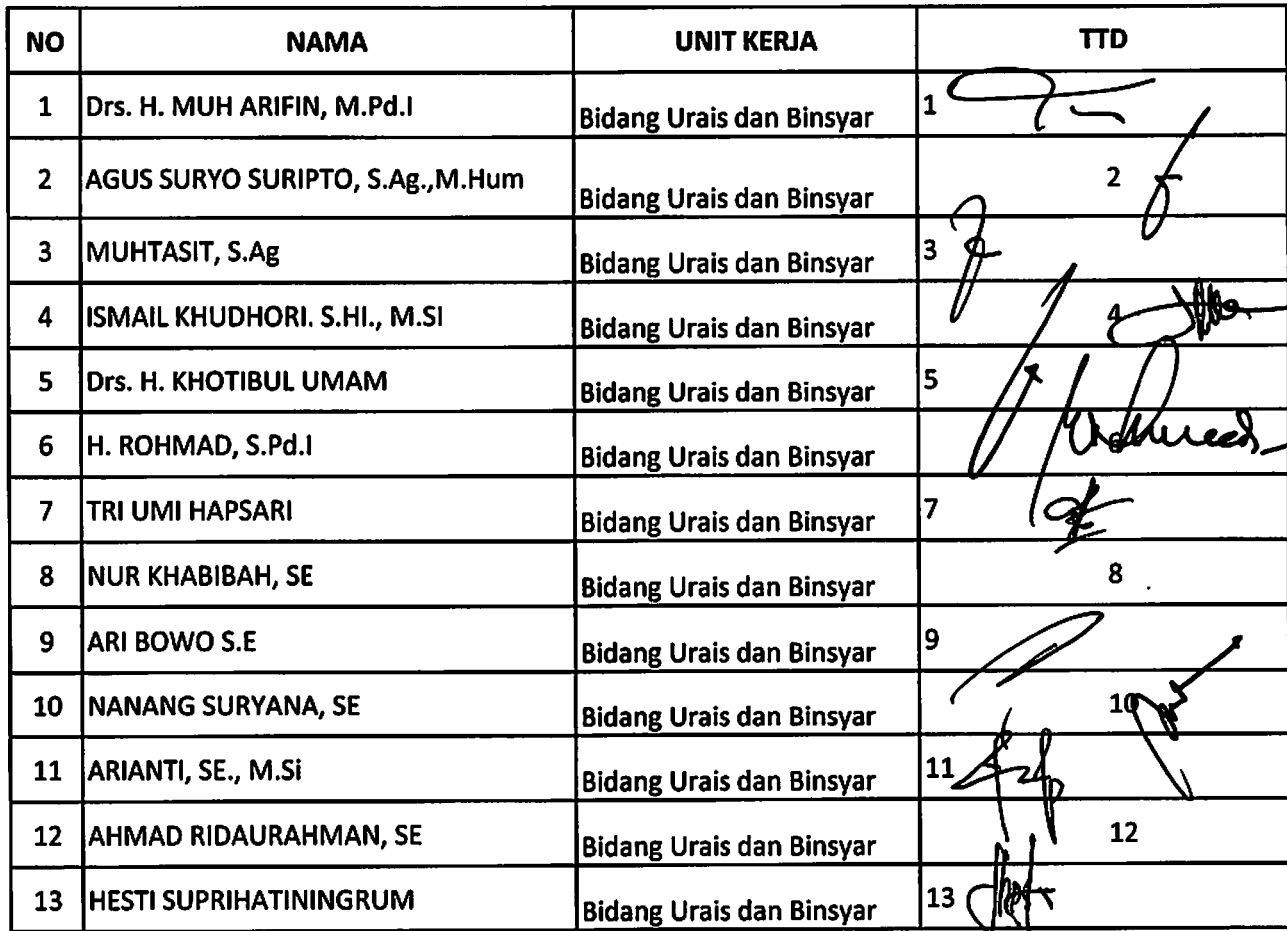 NO NAMA UNIT KERJA TTD
1 Drs. H. MUH ARIFIN, M.Pd.I Bidang Urais dan Binsyar 1
2 AGUS SURYO SURIPTO, S.Ag.,M.Hum Bidang Urais dan Binsyar 2
3 MUHTASIT, S.Ag Bidang Urais dan Binsyar 3
4 ISMAIL KHUDHORI. S.HI., M.SI Bidang Urais dan Binsyar 4
5 Drs. H. KHOTIBUL UMAM Bidang Urais dan Binsyar 5
6 H. ROHMAD, S.Pd.I Bidang Urais dan Binsyar 6
7 TRI UMI HAPSARI Bidang Urais dan Binsyar 7
8 NUR KHABIBAH, SE Bidang Urais dan Binsyar 8
9 ARI BOWO S.E Bidang Urais dan Binsyar 9
10 NANANG SURYANA, SE Bidang Urais dan Binsyar 10
11 ARIANTI, SE., M.Si Bidang Urais dan Binsyar 11
12 AHMAD RIDAURAHMAN, SE Bidang Urais dan Binsyar 12
13 HESTI SUPRIHATININGRUM Bidang Urais dan Binsyar 13